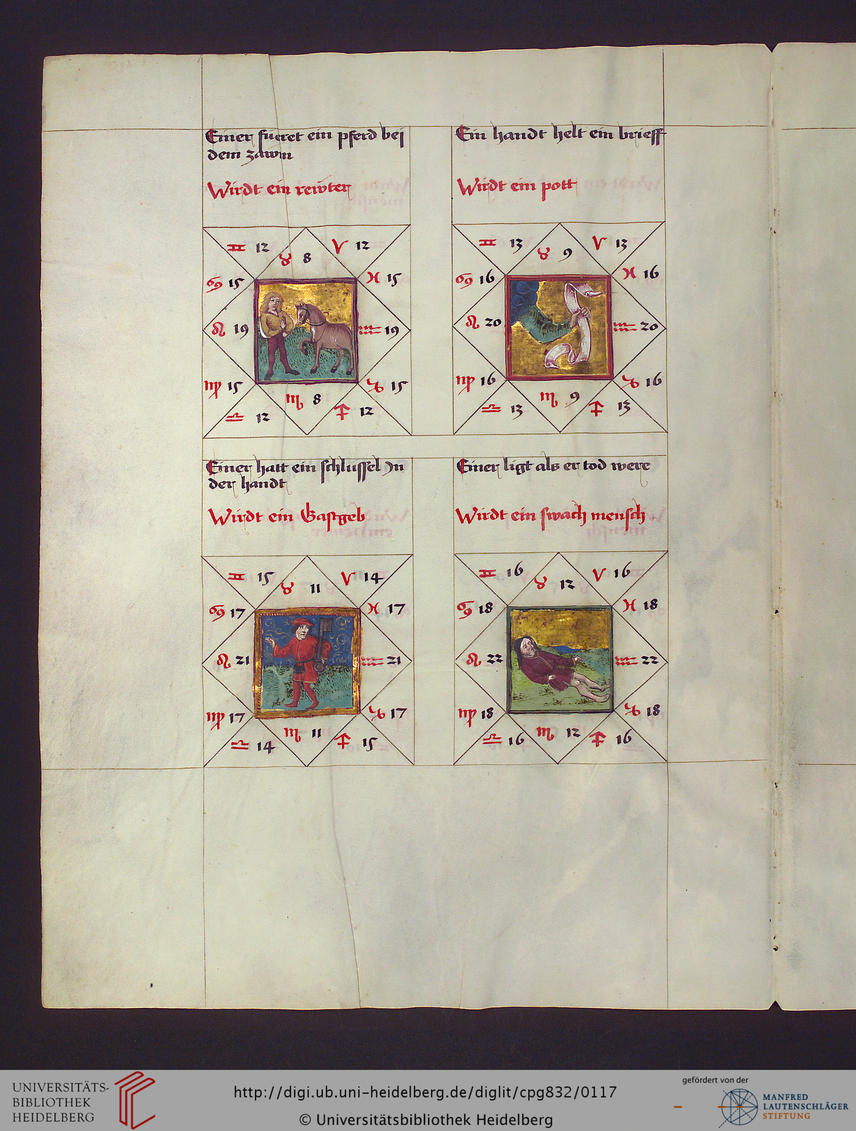 Einer fueret ein pferd bei
dem zawm
Wirdt ein rewter
♊ 12 ♉ 8 ♈ 12
♋ 15 ♓ 15
♌ 19 ♒ 19
♍ 15 ♑ 15
♎ 12 ♏ 8 ♐ 12
Ein handt helt ein brieff
Wirdt ein pott
♊ 13 ♉ 9 ♈ 13
♋ 16 ♓ 16
♌ 20 ♒ 20
♍ 16 ♑ 16
♎ 13 ♏ 9 ♐ 13
Einer hatt ein schlussel In
der handt
Wirdt ein Gastgeb
♊ 15 ♉ 11 ♈ 14
♋ 17 ♓ 17
♌ 21 ♒ 21
♍ 17 ♑ 17
♎ 14 ♏ 11 ♐ 15
Einer ligt als er tod were
Wirdt ein swach mensch
♊ 16 ♉ 12 ♈ 16
♋ 18 ♓ 18
♌ 22 ♒ 22
♍ 18 ♑ 18
♎ 16 ♏ 12 ♐ 16
UNIVERSITÄTS-
BIBLIOTHEK
HEIDELBERG
http://digi.ub.uni-heidelberg.de/diglit/cpg832/0117
© Universitätsbibliothek Heidelberg
gefördert von der
MANFRED
LAUTENSCHLÄGER
STIFTUNG